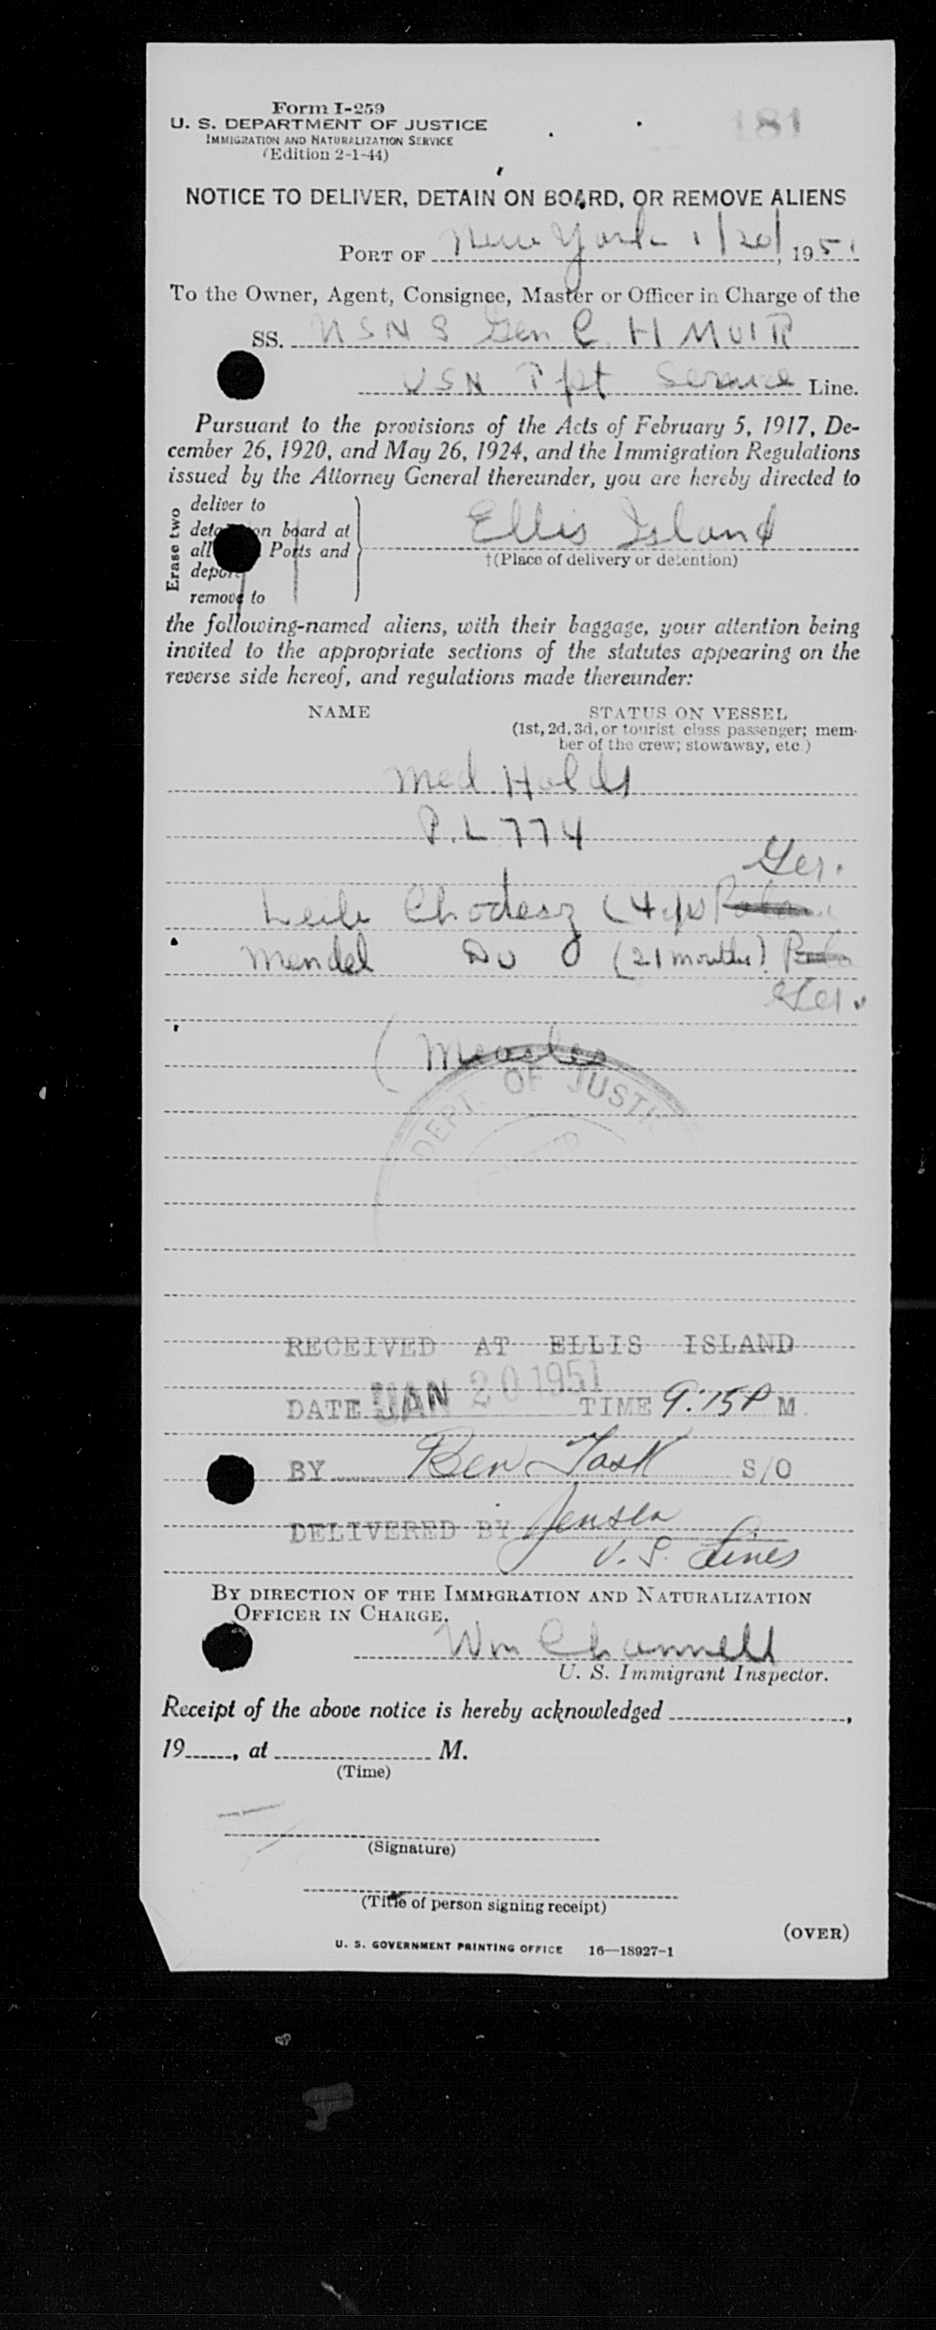 Form I-259
U. S. DEPARTMENT OF JUSTICE
IMMIGRATION AND NATURALIZATION SERVICE
(Edition 2-1-44)
181
NOTICE TO DELIVER, DETAIN ON BOARD, OR REMOVE ALIENS
PORT OF New York 1/20/, 1951
To the Owner, Agent, Consignee, Master or Officer in Charge of the
SS. USNS Gen C H MUIR
USN Tpt Service Line.
Pursuant to the provisions of the Acts of February 5, 1917, De-
cember 26, 1920, and May 26, 1924, and the Immigration Regulations
issued by the Attorney General thereunder, you are hereby directed to
Erase two
deliver to
on board at
all Ports and
remove to
Ellis Island
†(Place of delivery or detention)
the following-named aliens, with their baggage, your attention being
invited to the appropriate sections of the statutes appearing on the
reverse side hereof, and regulations made thereunder:
NAME STATUS ON VESSEL
(1st, 2d, 3d, or tourist class passenger; mem-
ber of the crew; stowaway, etc.)
Med Holds
P.L 774
Ger.
Leib Chodesz (4 yrs)
Mendel Do (21 months)
Ger.
(Measles
DEPT. OF JUSTICE
RECEIVED AT ELLIS ISLAND
DATE JAN 20 1951 TIME 9:15 P M.
BY Ben Task S/O
DELIVERED BY Jensen
U.S. Lines
BY DIRECTION OF THE IMMIGRATION AND NATURALIZATION
OFFICER IN CHARGE.
Wm Channell
U. S. Immigrant Inspector.
Receipt of the above notice is hereby acknowledged ,
19 , at M.
(Time)
(Signature)
(Title of person signing receipt)
(OVER)
U. S. GOVERNMENT PRINTING OFFICE 16—18927-1